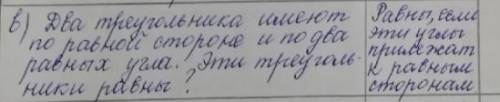 в) Два треугольника имеют
по равной стороне и по два
равных угла. Эти треуголь-
ники равны?
Равны, если
эти углы
прилежат
к равным
сторонам